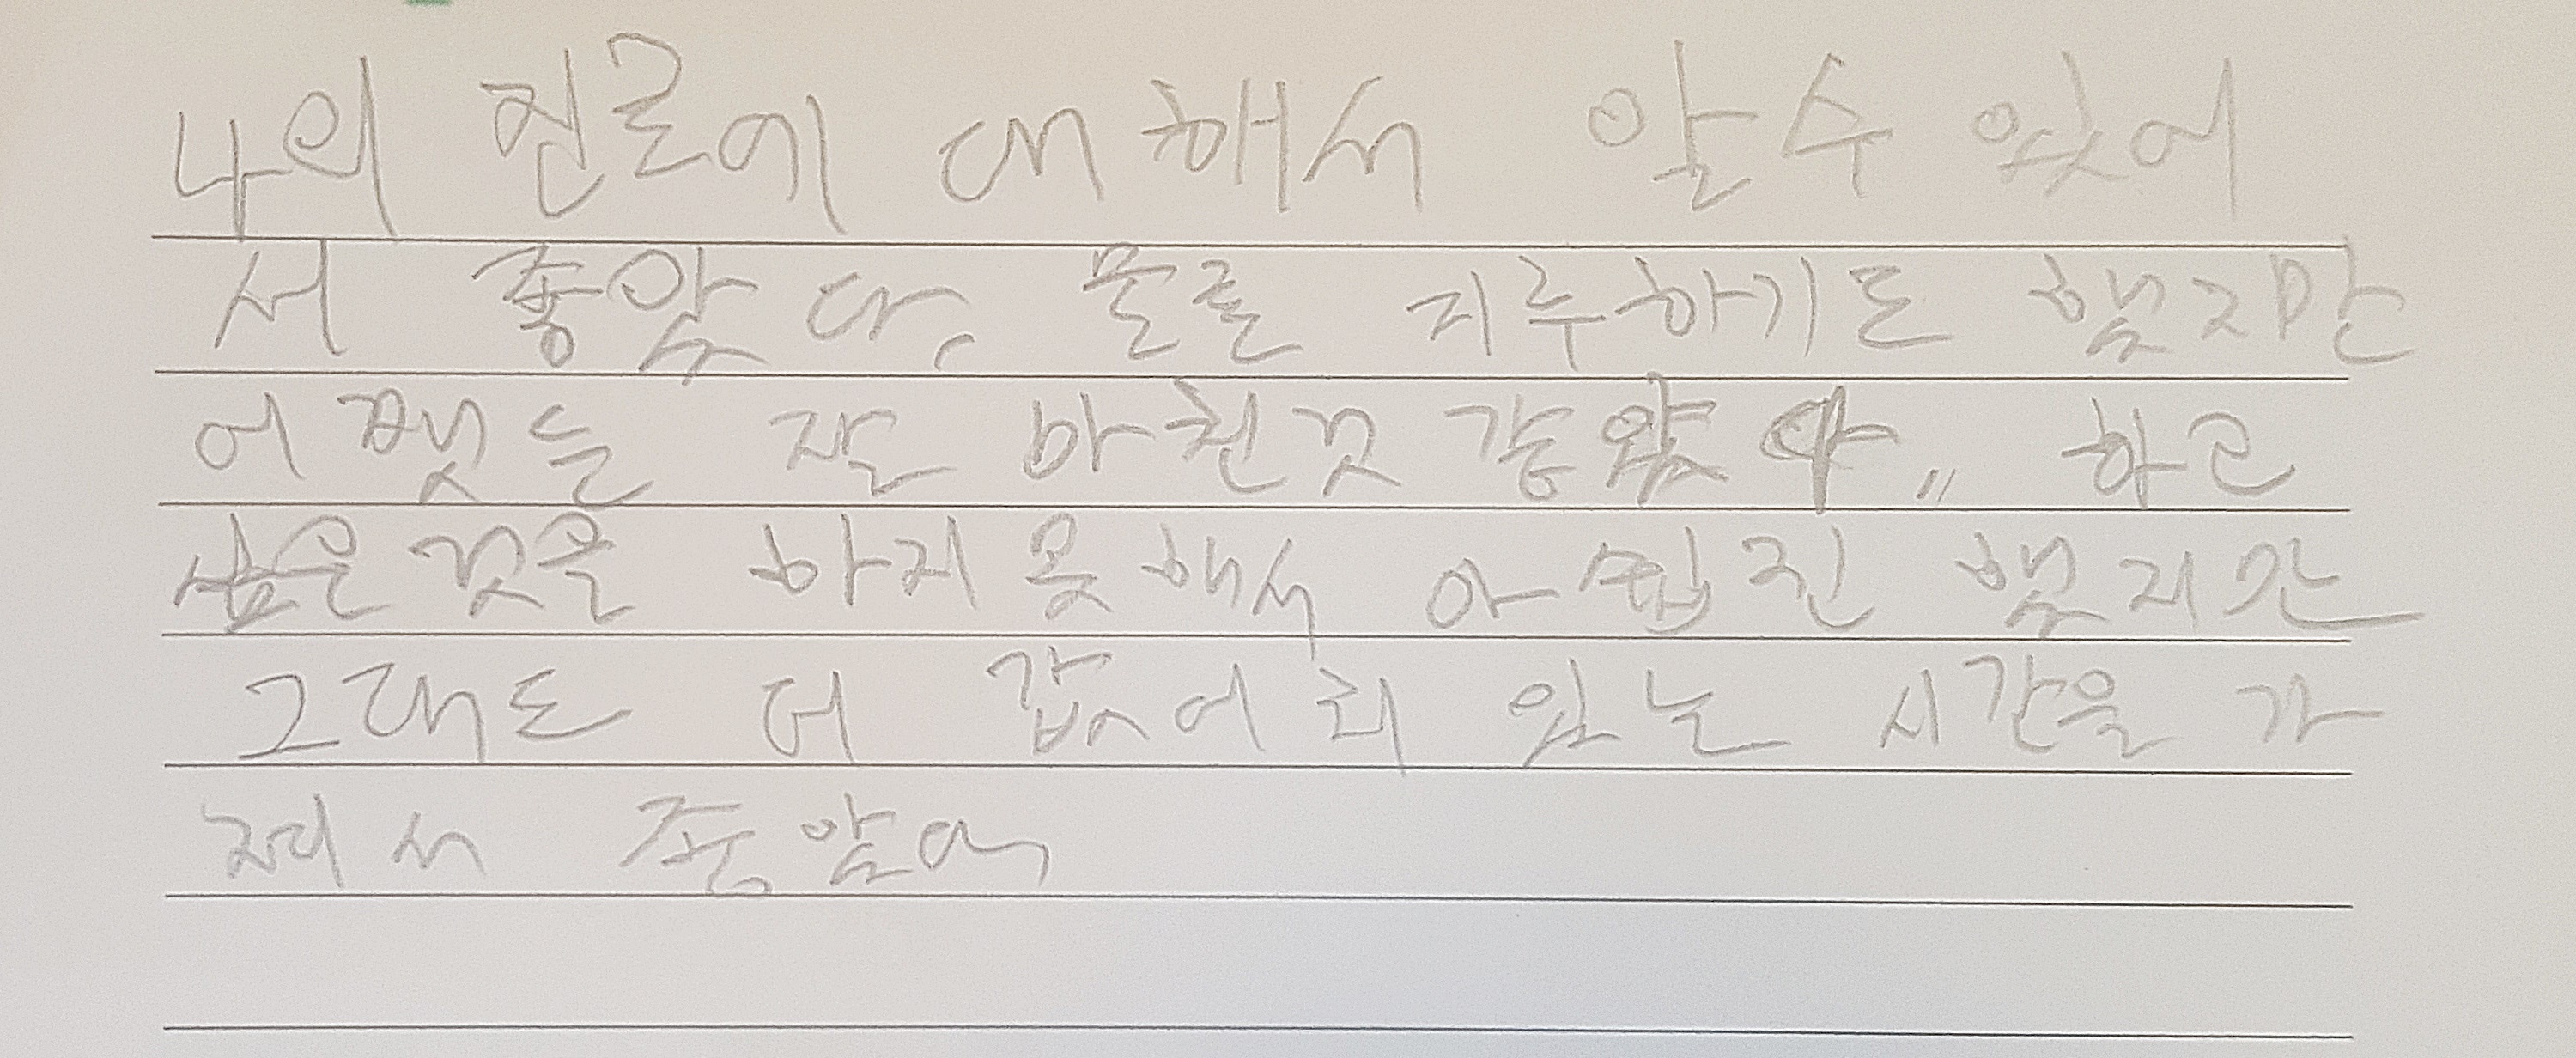 나의 진로에 대해서 알수있어
서 좋았다, 물론 지루하기도 했지만
어쨋든 잘 마친것 같았다,, 하고
싶은것을 하지못해서 아쉽긴 했지만
그래도 더 값어리 있는 시간을 가
져서 좋았다